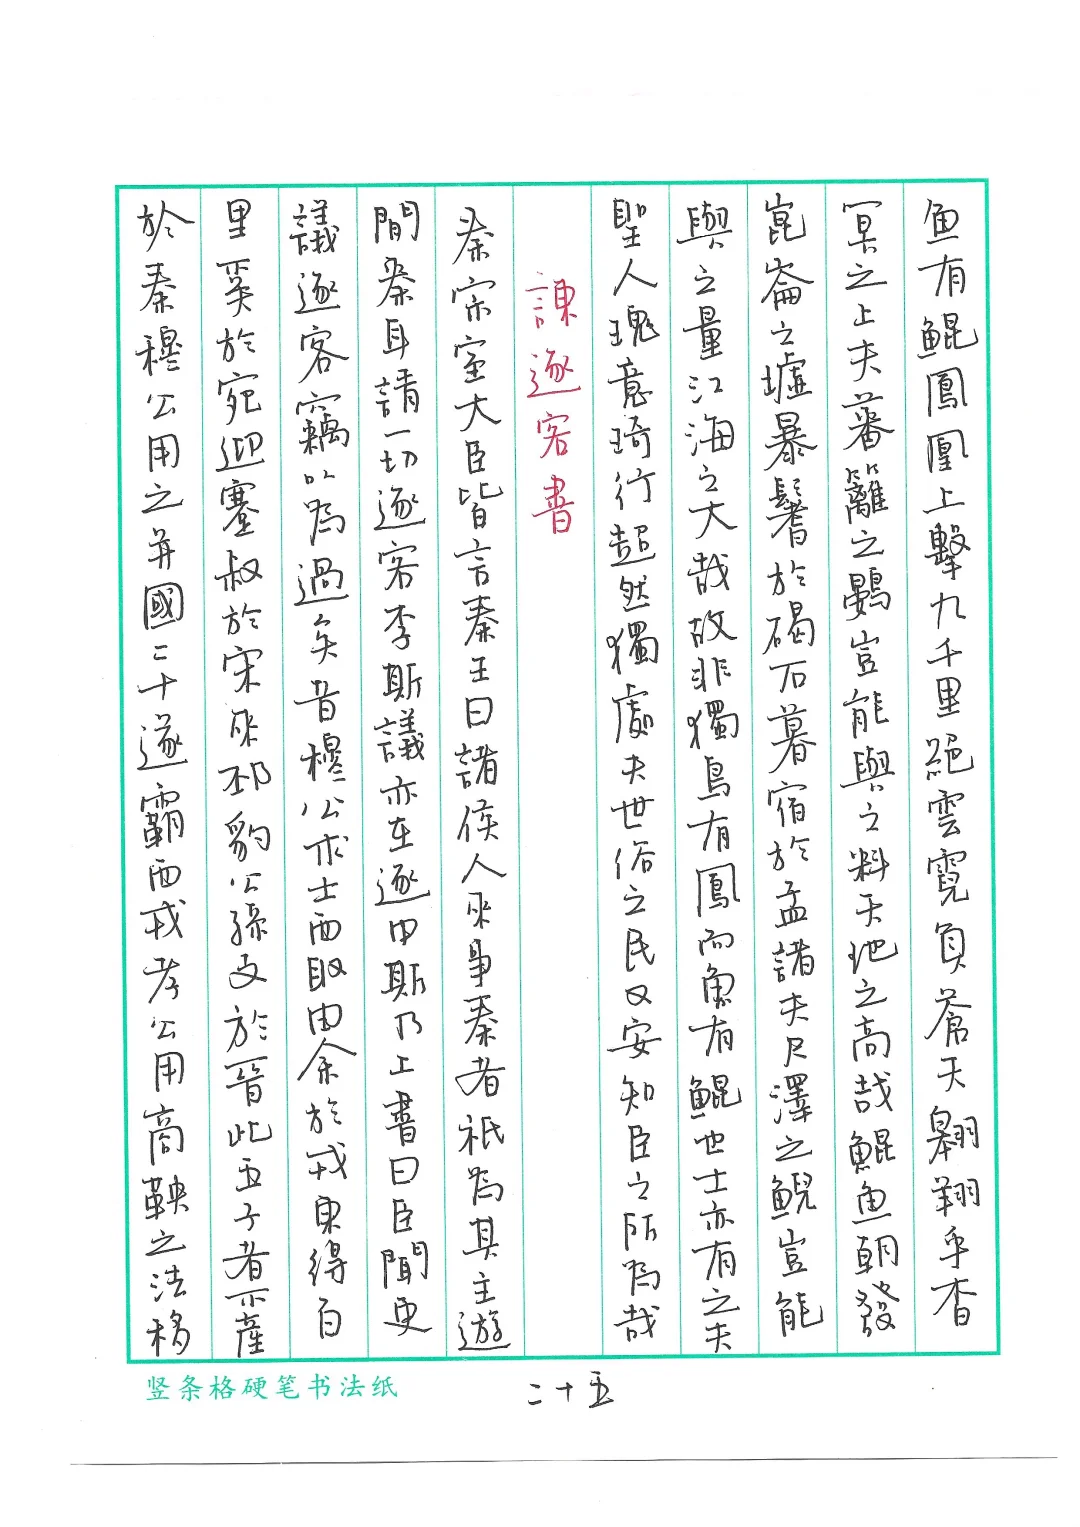 魚有鯤鳳凰上擊九千里絕雲霓負蒼天翱翔乎杳
冥之上夫蕃籬之鷃豈能與之料天地之高哉鯤魚朝發
崑崙之墟暴鬐於碣石暮宿於孟諸夫尺澤之鯢豈能
與之量江海之大哉故非獨鳥有鳳而魚有鯤也士亦有之夫
聖人瑰意琦行超然獨處夫世俗之民又安知臣之所為哉
諫逐客書
秦宗室大臣皆言秦王曰諸侯人來事秦者祇為其主遊
間秦耳請一切逐客李斯議亦在逐中斯乃上書曰臣聞吏
議逐客竊以為過矣昔穆公求士西取由余於戎東得百
里奚於宛迎蹇叔於宋來邳豹公孫支於晉此五子者不產
於秦穆公用之并國二十遂霸西戎孝公用商鞅之法移
竖条格硬笔书法纸
二十五